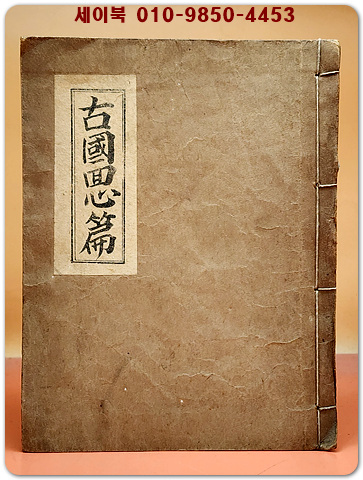 세이북 010-9850-4453
古國思篇